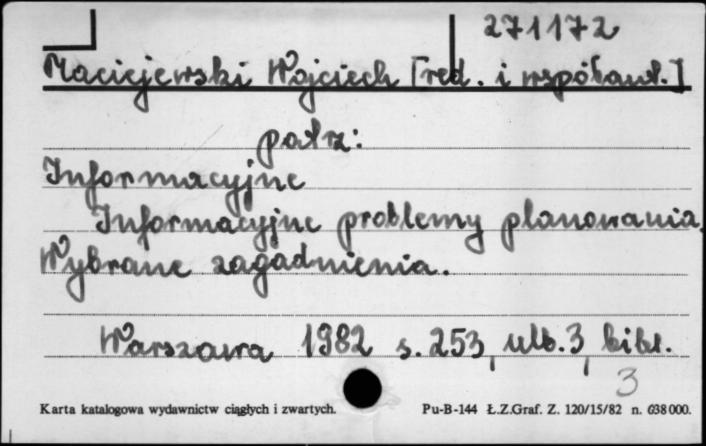 271172
Maciejewski Wojciech [red. i współaut.]
patrz:
Informacyjne
Informacyjne problemy planowania.
Wybrane zagadnienia.
Warszawa 1982 s. 253, nlb. 3, bibl.
3
Karta katalogowa wydawnictw ciągłych i zwartych. Pu-B-144 Ł.Z.Graf. Z. 120/15/82 n. 638000.